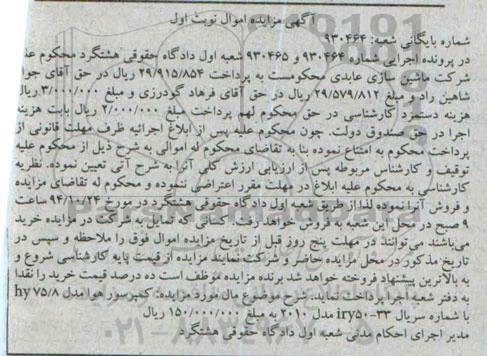 آگهی مزایده اموال نوبت اول
شماره بایگانی شعبه: ۹۳۰۴۶۴
در پرونده اجرایی شماره ۹۳۰۴۶۴ و ۹۳۰۴۶۵ شعبه اول دادگاه حقوقی هشتگرد محکوم عد
شرکت ماشین سازی عابدی محکومست به پرداخت ۲۹/۹۱۵/۸۵۴ ریال در حق آقای جوا
شاهین راد و مبلغ ۲۹/۵۷۹/۸۱۲ ریال در حق آقای فرهاد گودرزی و مبلغ ۳/۰۰۰/۰۰۰ ریال
هزینه دستمزد کارشناسی در حق محکوم لهم پرداخت مبلغ ۲/۰۰۰/۰۰۰ ریال بابت هزینه
اجرا در حق صندوق دولت. چون محکوم علیه پس از ابلاغ اجرائیه ظرف مهلت قانونی از
پرداخت محکوم به امتناع نموده بنا به تقاضای محکوم له اموالی به شرح ذیل از محکوم علیه
توقیف و کارشناس مربوطه پس از ارزیابی ارزش کلی آنرا به شرح آتی تعیین نموده. نظریه
کارشناسی به محکوم علیه ابلاغ در مهلت مقرر اعتراضی ننموده و محکوم له تقاضای مزایده
و فروش آنرا نموده لذا از طریق شعبه اول دادگاه حقوقی هشتگرد در مورخ ۹۴/۱۰/۲۴ ساعت
۹ صبح در محل این شعبه به فروش خواهد رفت. کسانی که تمایل به شرکت در مزایده خرید
می‌باشند می‌توانند در مهلت پنج روز قبل از تاریخ مزایده اموال فوق را ملاحظه و سپس در
تاریخ مذکور در محل مزایده حاضر و شرکت نمایند مزایده از قیمت پایه کارشناسی شروع و
به بالاترین پیشنهاد فروخته خواهد شد برنده مزایده موظف است ده درصد قیمت خرید را نقدا
به دفتر شعبه اجرا پرداخت نماید. شرح موضوع مال مورد مزایده: کمپرسور هوا مدل hy ۷۵/۸
با شماره سریال iry۵۰-۳۳ مدل ۲۰۱۰ به مبلغ ۱۵۰/۰۰۰/۰۰۰ ریال
مدیر اجرای احکام مدنی شعبه اول دادگاه حقوقی هشتگرد